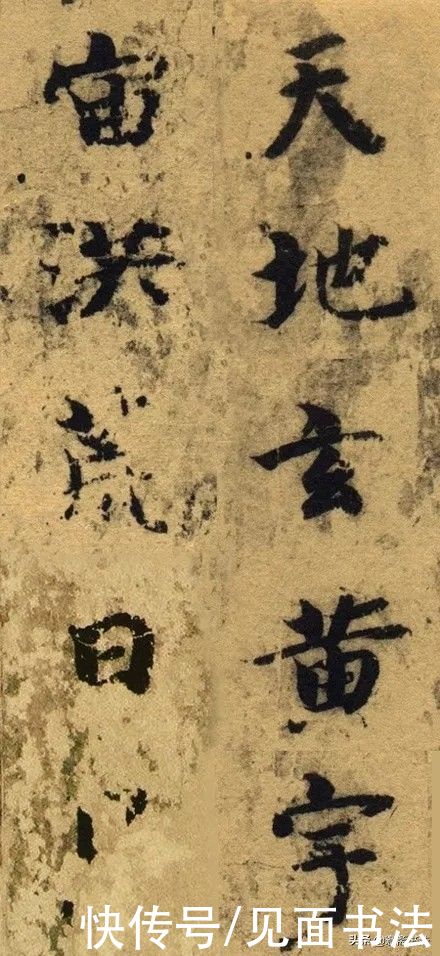 天地玄黄宇
宙洪荒日
快传号/见面书法